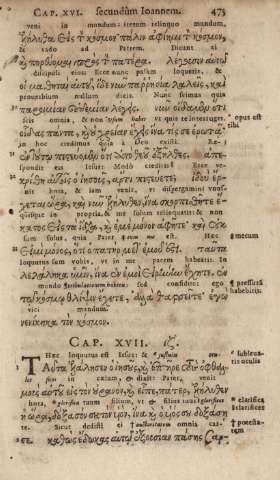 CAP. XVI. secundum Ioannem. 475
veni in mundum: iterum relinquo mundum,
ἐλήλυθα εἰς τ κόσμον· πάλιν ἀφίημι τ κόσμον,
& vado ad Patrem. Dicunt ei
πορεύομαι πρὸς τ πατέρα. λέγουσιν αὐτῷ
discipuli eius: Ecce nunc palam loqueris, &
οἱ μαθηταὶ αὐτοῦ, ἴδε νῦν παρρησίᾳ λαλεῖς, καὶ
prouerbium nullum dicis. Nunc scimus quia
παροιμίαν οὐδεμίαν λέγεις. νῦν οἴδαμεν ὅτι
scis omnia, & non opus habes vt quis te interroget.
opus est tibi
οἶδας πάντα, καὶ οὐ χρείαν ἔχεις ἵνα τίς σε ἐρωτᾷ·
in hoc credimus quia à Deo existi. Re-
ἐν τούτῳ πιστεύομεν ὅτι ἀπὸ θεοῦ ἐξῆλθες. ἀπε-
spondit Iesus: Modò creditis? Ecce ve-
κρίθη αὐτοῖς ὁ ἰησοῦς, ἄρτι πιστεύετε; ἰδοὺ ἔρ-
nit hora, & iam venit, vt dispergamini vnus-
χεται ὥρα, καὶ νῦν ἐλήλυθεν, ἵνα σκορπισθῆτε ἕ-
quisque in propria, & me solum relinquatis: & non
καστος εἰς τὰ ἴδια, καὶ ἐμὲ μόνον ἀφῆτε· καὶ οὐκ
sum solus, quia Pater mecum est. Hæc
mecum
εἰμὶ μόνος, ὅτι ὁ πατὴρ μετ' ἐμοῦ ἐστί. ταῦτα
loquutus sum vobis, vt in me pacem habeatis. In
λελάληκα ὑμῖν, ἵνα ἐν ἐμοὶ εἰρήνην ἔχητε. ἐν
mundo sed confidite: ego
pressurã habebitis:
τῷ κόσμῳ θλίψιν ἔχετε, ἀλλὰ θαρσεῖτε· ἐγὼ
vici mundum.
νενίκηκα τὸν κόσμον.
CAP. XVII. ιζ.
Hæc loquutus est Iesus: &
subleuatis oculis
Ταῦτα ἐλάλησεν ὁ ἰησοῦς, καὶ ἐπῆρε τοὺς ὀφθαλ-
in cælum, & dixit: Pater, venit
μοὺς αὐτοῦ εἰς τὸν οὐρανόν, καὶ εἶπε, πάτερ, ἐλήλυθεν
hora, filium, filius
clarifica
clarificet
ἡ ὥρα, δόξασόν σου τὸν υἱόν, ἵνα καὶ ὁ υἱός σου δοξάσῃ
te. Sicut dedisti ei omnis car-
potestatem
σε. καθὼς ἔδωκας αὐτῷ ἐξουσίαν πάσης σαρ-